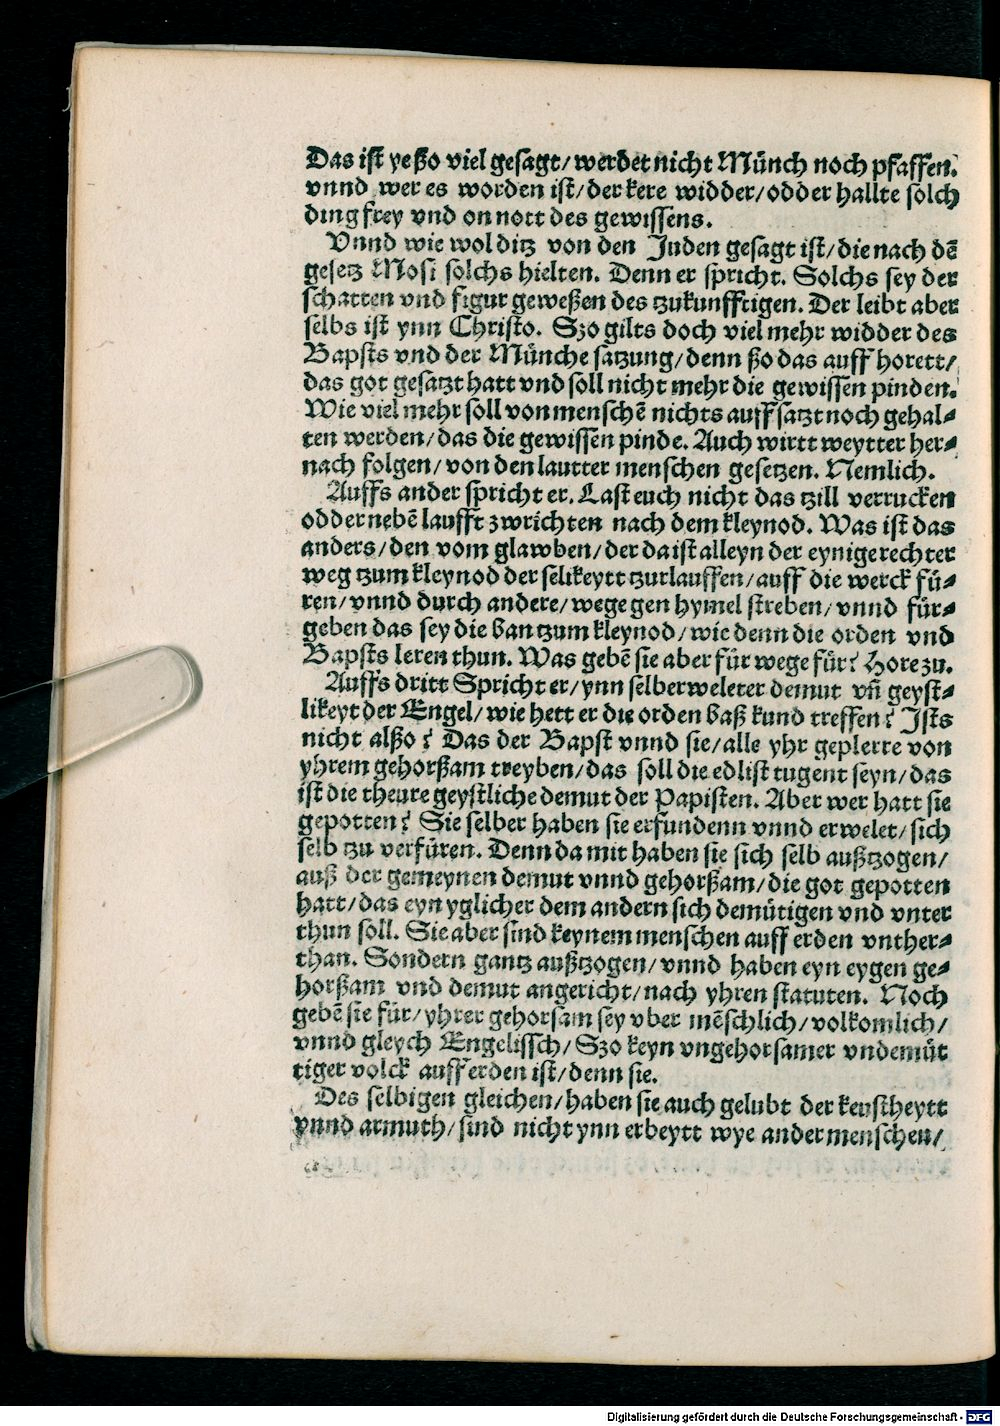 Das ist yeßo viel gesagt/ werdet nicht Münch noch pfaffen.
vnnd wer es worden ist/ der kere widder/ odder hallte solch
ding frey vnd on nott des gewissens.
Vnnd wie wol ditz von den Juden gesagt ist/ die nach dē
gesetz Mosi solchs hielten. Denn er spricht. Solchs sey der
schatten vnd figur geweßen des tzukunfftigen. Der leibt aber
selbs ist ynn Christo. Szo gilts doch viel mehr widder des
Bapsts vnd der Münche satzung/ denn ßo das auff horett/
das got gesatzt hatt vnd soll nicht mehr die gewissen pinden.
Wie viel mehr soll von menschē nichts auff satzt noch gehal⸗
ten werden/ das die gewissen pinde. Auch wirtt weytter her⸗
nach folgen/ von den lautter menschen gesetzen. Nemlich.
Auffs ander spricht er. Last euch nicht das tzill verrucken
odder nebē laufft zwrichten nach dem kleynod. Was ist das
anders/ den vom glawben/ der da ist alleyn der eynige rechter
weg tzum kleynod der selikeytt tzurlauffen/ auff die werck fü⸗
ren/ vnnd durch andere/ wege gen hymel streben/ vnnd für⸗
geben das sey die ban tzum kleynod/ wie denn die orden vnd
Bapsts leren thun. Was gebē sie aber für wege für? Hore zu.
Auffs dritt Spricht er/ ynn selber weleter demut vñ geyst⸗
likeyt der Engel/ wie hett er die orden baß kund treffen? Ists
nicht alßo? Das der Bapst vnnd sie/ alle yhr geplerre von
yhrem gehorßam treyben/ das soll die edlist tugent seyn/ das
ist die theure geystliche demut der Papisten. Aber wer hatt sie
gepotten? Sie selber haben sie erfundenn vnnd erwelet/ sich
selb tzu verfüren. Denn da mit haben sie sich selb außtzogen/
auß der gemeynen demut vnnd gehorßam/ die got gepotten
hatt/ das eyn yglicher dem andern sich demütigen vnd vnter
thun soll. Sie aber sind keynem menschen auff erden vnther⸗
than. Sondern gantz außtzogen/ vnnd haben eyn eygen ge⸗
horßam vnd demut angericht/ nach yhren statuten. Noch
gebē sie für/ yhrer gehorsam sey vber mēschlich/ volkomlich/
vnnd gleych Engelissch/ Szo keyn vngehorsamer vndemüt
tiger volck auff erden ist/ denn sie.
Des selbigen gleichen/ haben sie auch gelubt der keustheytt
vnnd armuth/ sind nicht ynn erbeytt wye ander menschen/
Digitalisierung gefördert durch die Deutsche Forschungsgemeinschaft - DFG